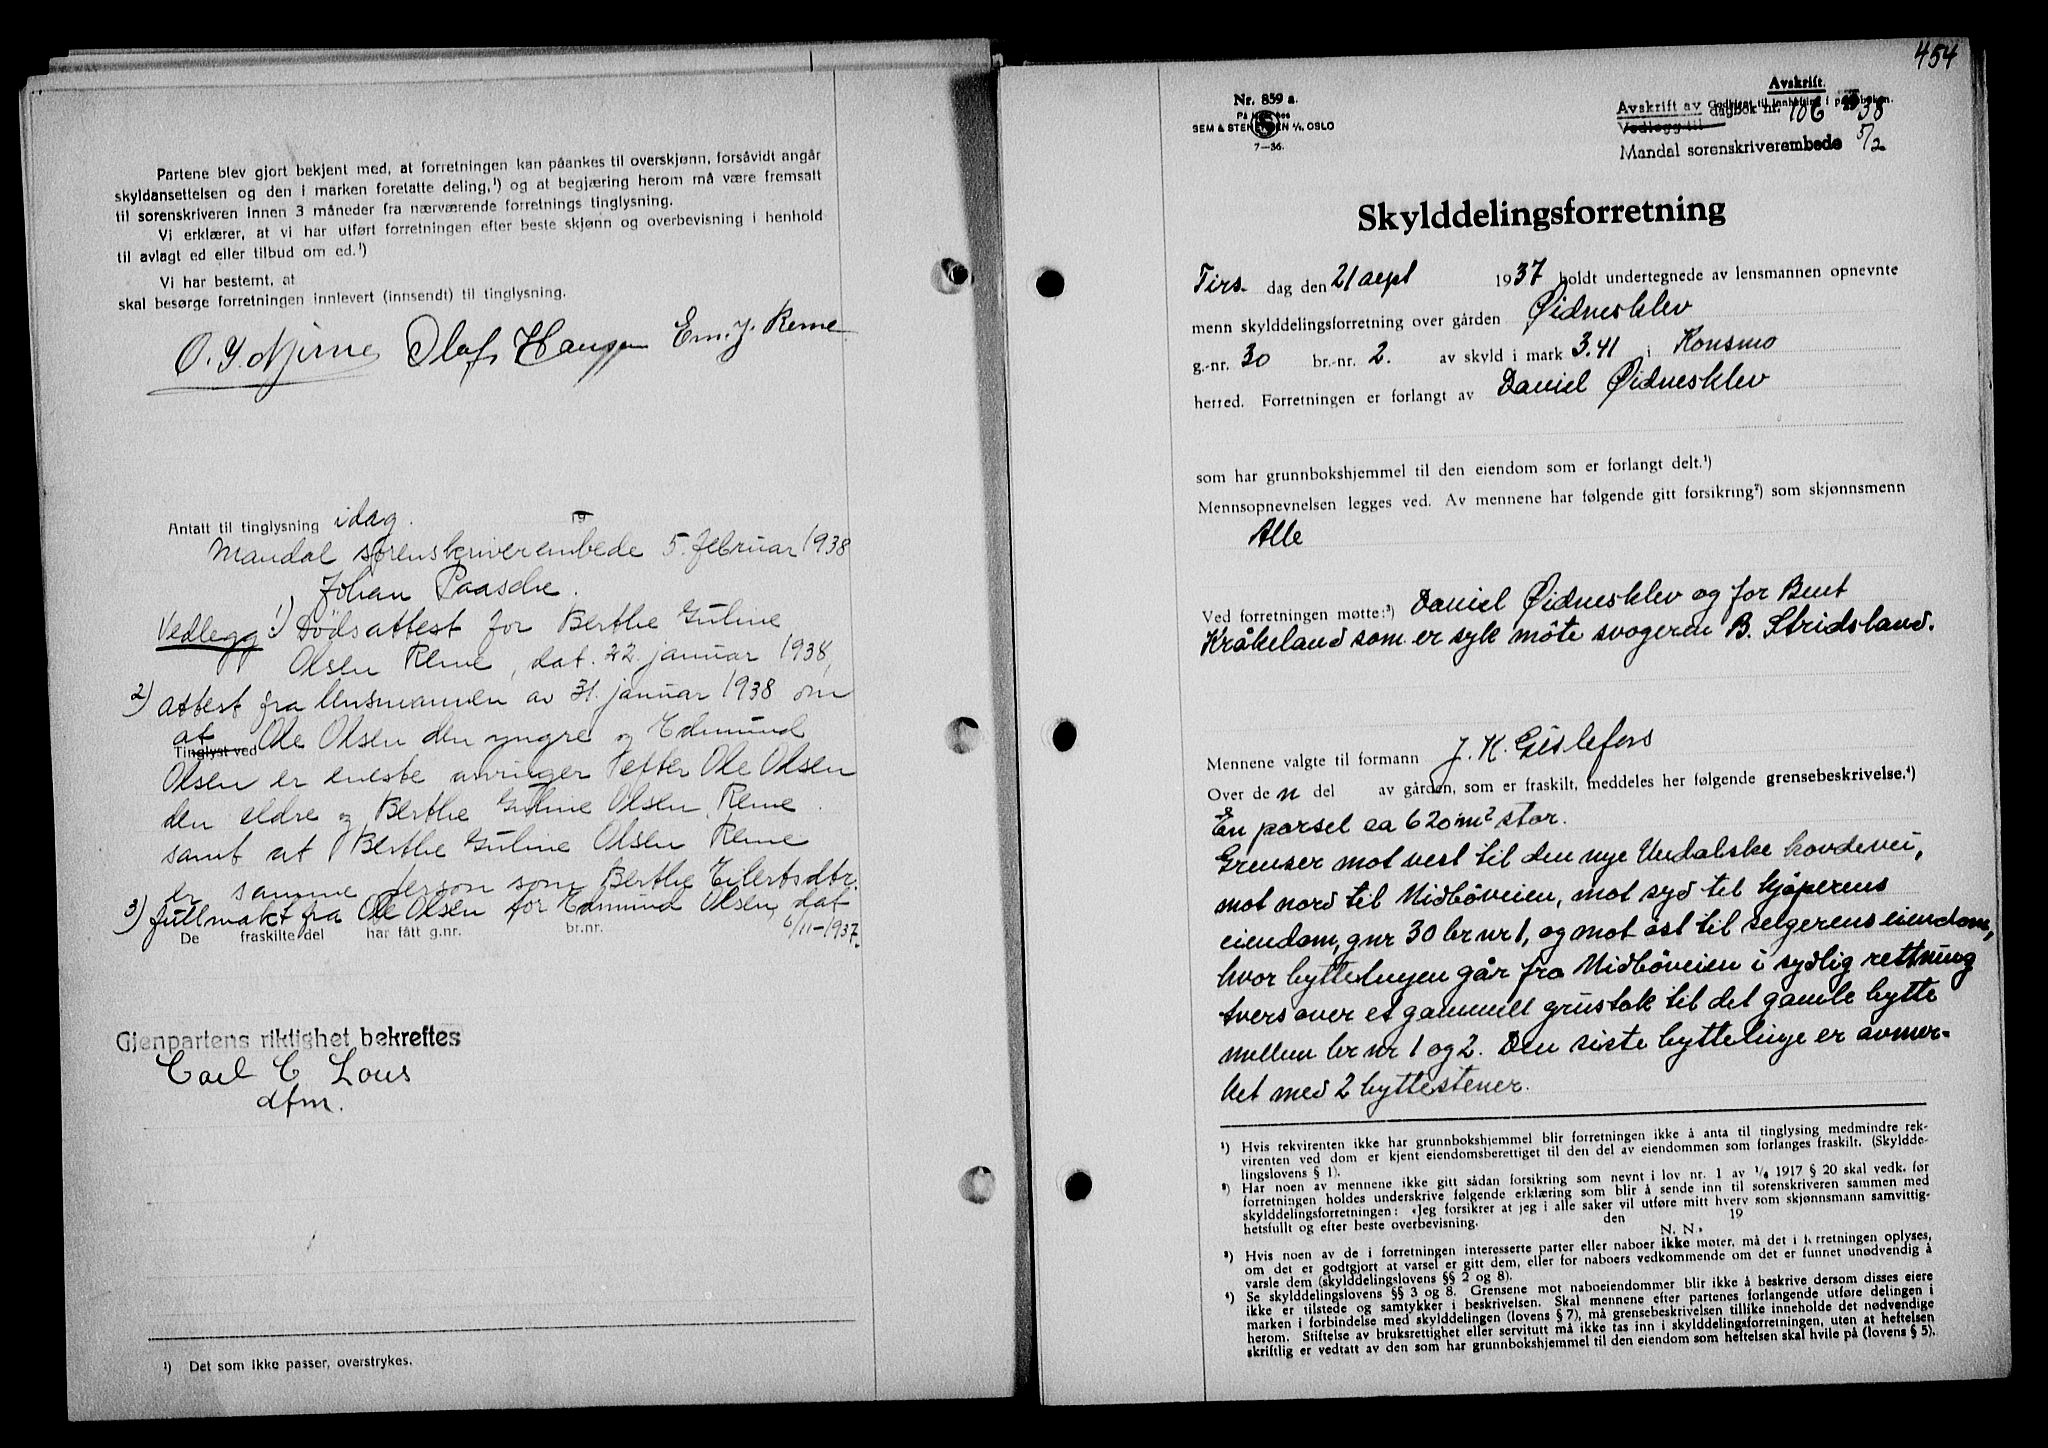 Partene blev gjort bekjent med, at forretningen kan påankes til overskjønn, forsåvidt angår
skyldansettelsen og den i marken foretatte deling,¹) og at begjæring herom må være fremsatt
til sorenskriveren innen 3 måneder fra nærværende forretnings tinglysning.
Vi erklærer, at vi har utført forretningen efter beste skjønn og overbevisning i henhold
til avlagt ed eller tilbud om ed.¹)
Vi har bestemt, at
skal besørge forretningen innlevert (innsendt) til tinglysning.
Olaf Hansen Em. J. Reme
Antatt til tinglysning idag. 19
Mandal sorenskriverembede 5. februar 1938
Johan Paasche.
Vedlegg: 1) Dödsattest for Berthe Guline
Olsen Reme, dat. 22 januar 1938,
2) attest fra lensmannen av 31. januar 1938 om
at Tinglyst ved Ole Olsen den yngre og Edmund
Olsen er eneste arvinger efter Ole Olsen
den eldre og Berthe Guline Olsen Reme
samt at Berthe Guline Olsen Reme
er samme person som Berthe Eilertsdtr.
3) fullmakt fra Ole Olsen for Edmund Olsen, dat
6/11-1937.
De fraskilte del har fått g.nr. br.nr.
Gjenpartens riktighet bekreftes
Carl C. Lous
dfm.
¹) Det som ikke passer, overstrykes.
454
Nr. 859 a.
SEM & STENERSEN A/S, OSLO
7—36.
Avskrift.
Avskrift av dagbok nr. 106 1938
Vedlegg til
5/2
Mandal sorenskriverembede
Skylddelingsforretning
Tirs. dag den 21 sept 1937 holdt undertegnede av lensmannen opnevnte
menn skylddelingsforretning over gården Øidnesklev
g.-nr. 30 br.-nr. 2. av skyld i mark 3.41 i Konsmo
herred. Forretningen er forlangt av Daniel Øidnesklev
som har grunnbokshjemmel til den eiendom som er forlangt delt.¹)
Mennsopnevnelsen legges ved. Av mennene har følgende gitt forsikring²) som skjønnsmenn
Alle
Ved forretningen møtte:³) Daniel Øidnesklev og for Bent
Kråkeland som er syk möte svogeren B. Stridsland.
Mennene valgte til formann J. K. Gislefoss
Over de n del av gården, som er fraskilt, meddeles her følgende grensebeskrivelse.⁴)
En parsel ca 620 m² stor.
Grenser mot vest til den nye Undalske hovdevei,
mot nord til Midböveien, mot syd til kjöperens
eiendom, gnr 30 br nr 1, og mot öst til selgerens eiendom,
hvor byttelinjen går fra Midböveien i sydlig rettning
tvers over et gammelt grustak til det gamle bytte
mellem br nr 1 og 2. Den siste byttelinje er avmer-
ket med 2 byttestener.
¹) Hvis rekvirenten ikke har grunnbokshjemmel blir forretningen ikke å anta til tinglysing medmindre rek-
virenten ved dom er kjent eiendomsberettiget til den del av eiendommen som forlanges fraskilt. (Skyldde-
lingslovens § 1).
²) Har noen av mennene ikke gitt sådan forsikring som nevnt i lov nr. 1 av ¹/₆ 1917 § 20 skal vedk. før
forretningen holdes underskrive følgende erklæring som blir å sende inn til sorenskriveren sammen med
skylddelingsforretningen: «Jeg forsikrer at jeg i alle saker vil utføre mitt hverv som skjønnsmann samvittig-
hetsfullt og efter beste overbevisning. den 19
N. N.
³) Hvis noen av de i forretningen interesserte parter eller naboer ikke møter, må det i forretningen oplyses,
om det er godtgjort at varsel er gitt dem, eller for naboers vedkommende om det er funnet unødvendig å
varsle dem (skylddelingslovens §§ 2 og 8).
⁴) Se skylddelingslovens §§ 3 og 8. Grensene mot naboeiendommer blir ikke å beskrive dersom disses eiere
ikke er tilstede og samtykker i beskrivelsen. Skal mennene efter partenes forlangende utføre delingen i
marken i forbindelse med skylddelingen (lovens § 7), må grensebeskrivelsen tillike inneholde det nødvendige
herom. Stiftelse av bruksrettighet eller servitutt må ikke tas inn i skylddelingsforretningen, uten at heftelsen
skriftlig er vedtatt av den som har grunnbokshjemmel til den eiendom som heftelsen skal hvile på (lovens § 5).